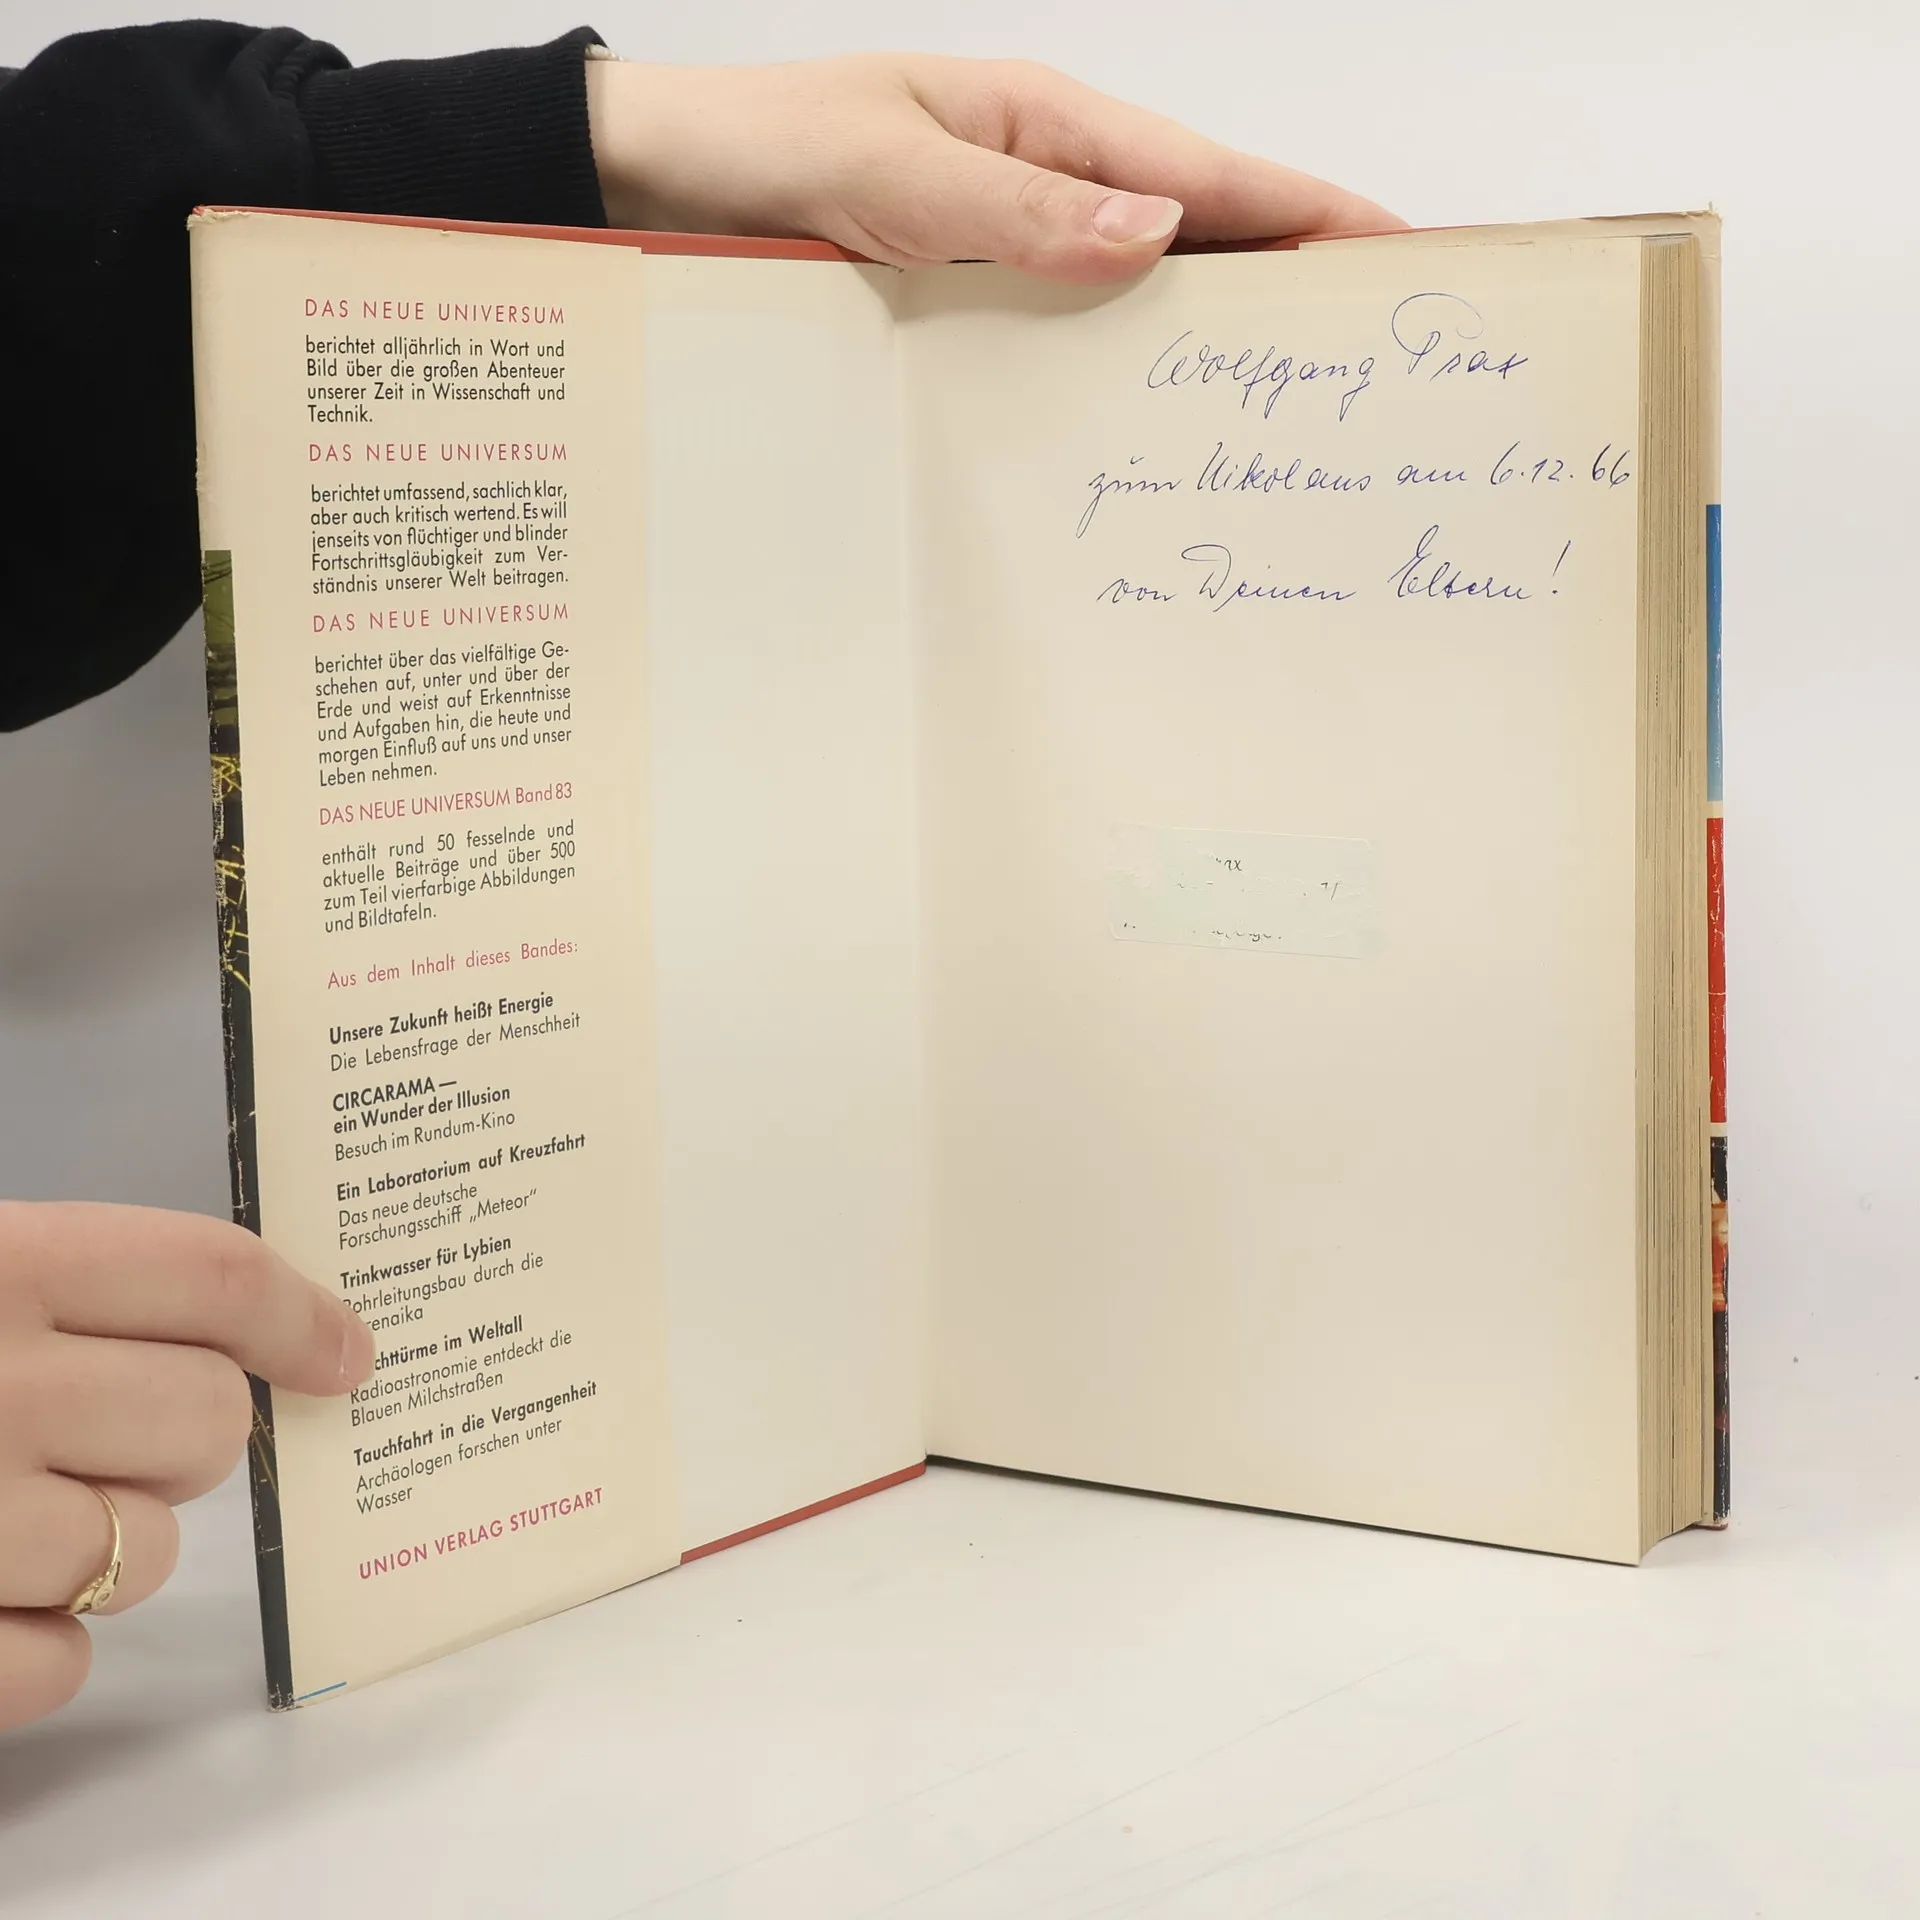 DAS NEUE UNIVERSUM
berichtet alljährlich in Wort und
Bild über die großen Abenteuer
unserer Zeit in Wissenschaft und
Technik.
DAS NEUE UNIVERSUM
berichtet umfassend, sachlich klar,
aber auch kritisch wertend. Es will
jenseits von flüchtiger und blinder
Fortschrittsgläubigkeit zum Ver-
ständnis unserer Welt beitragen.
DAS NEUE UNIVERSUM
berichtet über das vielfältige Ge-
schehen auf, unter und über der
Erde und weist auf Erkenntnisse
und Aufgaben hin, die heute und
morgen Einfluß auf uns und unser
Leben nehmen.
DAS NEUE UNIVERSUM Band 83
enthält rund 50 fesselnde und
aktuelle Beiträge und über 500
zum Teil vierfarbige Abbildungen
und Bildtafeln.
Aus dem Inhalt dieses Bandes:
Unsere Zukunft heißt Energie
Die Lebensfrage der Menschheit
CIRCARAMA —
ein Wunder der Illusion
Besuch im Rundum-Kino
Ein Laboratorium auf Kreuzfahrt
Das neue deutsche
Forschungsschiff „Meteor“
Trinkwasser für Lybien
Rohrleitungsbau durch die
renaika
chttürme im Weltall
Radioastronomie entdeckt die
Blauen Milchstraßen
Tauchfahrt in die Vergangenheit
Archäologen forschen unter
Wasser
UNION VERLAG STUTTGART
Wolfgang Prax
zum Nikolaus am 6.12.66
von Deinen Eltern!